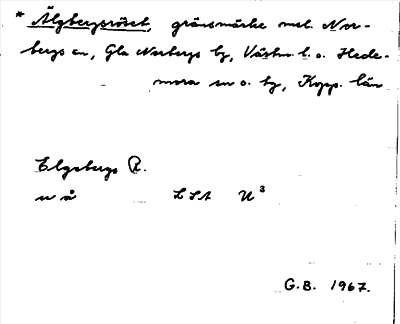 * Älgbergsröset, gränsmärke mel. Nor-
bergs sn, Gla Norbergs bg, Västm. l. o. Hede-
mora sn o. bg, Kopp. län
Elgsbergs R.
u å LSA U³
G.B. 1967.